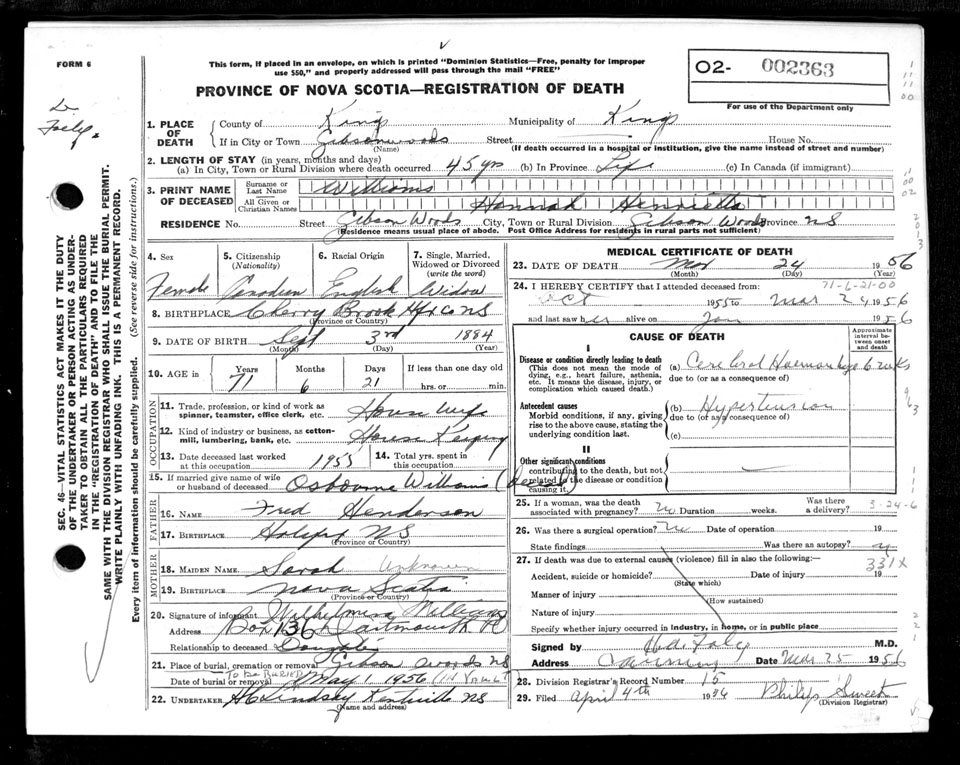 FORM 6
This form, if placed in an envelope, on which is printed "Dominion Statistics—Free, penalty for improper
use $50," and properly addressed will pass through the mail "FREE"
PROVINCE OF NOVA SCOTIA—REGISTRATION OF DEATH
O2- 002363
For use of the Department only
Dr Foley
SEC. 46—VITAL STATISTICS ACT MAKES IT THE DUTY
OF THE UNDERTAKER OR PERSON ACTING AS UNDER-
TAKER TO OBTAIN ALL THE PARTICULARS REQUIRED
IN THE "REGISTRATION OF DEATH" AND TO FILE THE
SAME WITH THE DIVISION REGISTRAR WHO SHALL ISSUE THE BURIAL PERMIT.
WRITE PLAINLY WITH UNFADING INK. THIS IS A PERMANENT RECORD.
Every item of information should be carefully supplied. (See reverse side for instructions.)
1. PLACE OF DEATH
County of Kings Municipality of Kings
If in City or Town Gibsonwoods Street House No.
(Name) (If death occurred in a hospital or institution, give the name instead of street and number)
2. LENGTH OF STAY (in years, months and days)
(a) In City, Town or Rural Division where death occurred 45 yrs (b) In Province Life (c) In Canada (if immigrant)
3. PRINT NAME OF DECEASED
Surname or Last Name Williams
All Given or Christian Names Hannah Henrietta
RESIDENCE No. Street Gibson Woods City, Town or Rural Division Gibson Woods Province NS
(Residence means usual place of abode. Post Office Address for residents in rural parts not sufficient)
4. Sex 5. Citizenship (Nationality) 6. Racial Origin 7. Single, Married, Widowed or Divorced (write the word)
Female Canadian English Widow
8. BIRTHPLACE Cherry Brook Hfx Co NS
(Province or Country)
9. DATE OF BIRTH Sept 3rd 1884
(Month) (Day) (Year)
10. AGE in Years Months Days If less than one day old
71 6 21 hrs. or min.
OCCUPATION
11. Trade, profession, or kind of work as
spinner, teamster, office clerk, etc. House Wife
12. Kind of industry or business, as cotton-
mill, lumbering, bank, etc. House Keeping
13. Date deceased last worked
at this occupation 1955
14. Total yrs. spent in
this occupation
15. If married give name of wife
or husband of deceased Osbourne Williams (decsd)
FATHER
16. Name Fred Henderson
17. Birthplace Halifax NS
(Province or Country)
MOTHER
18. Maiden Name Sarah Unknown
19. Birthplace Nova Scotia
(Province or Country)
20. Signature of informant Wilhelmina Williams
Address Box 136 Dartmouth
Relationship to deceased Daughter
21. Place of burial, cremation or removal Gibson Woods NS
TO BE BURIED
Date of burial or removal May 1 1956 (IN VAULT)
22. Undertaker H C Lindsay Kentville NS
(Name and address)
MEDICAL CERTIFICATE OF DEATH
23. DATE OF DEATH Mar 24 1956
(Month) (Day) (Year)
71-6-21-00
24. I HEREBY CERTIFY that I attended deceased from:
Oct 1955 to Mar 24 1956
and last saw her alive on Jan 1956
CAUSE OF DEATH
Approximate interval between onset and death
I
Disease or condition directly leading to death
(This does not mean the mode of
dying, e.g., heart failure, asthenia,
etc. It means the disease, injury, or
complication which caused death.)
(a) Cerebral Haemorrhage 6 wks
due to (or as a consequence of)
Antecedent causes
Morbid conditions, if any, giving
rise to the above cause, stating the
underlying condition last.
(b) Hypertension
due to (or as a consequence of)
(c)
II
Other significant conditions
contributing to the death, but not
related to the disease or condition
causing it.
25. If a woman, was the death
associated with pregnancy? No Duration weeks. Was there
a delivery?
3-24-6
26. Was there a surgical operation? No Date of operation 19
State findings Was there an autopsy?
27. If death was due to external causes (violence) fill in also the following:—
331X
Accident, suicide or homicide? Date of injury 19
(State which)
Manner of injury
(How sustained)
Nature of injury
Specify whether injury occurred in industry, in home, or in public place
Signed by Foley M.D.
Address Canning Date Mar 25 1956
28. Division Registrar's Record Number 15
29. Filed April 4th 1956 Philip Sweet
(Division Registrar)